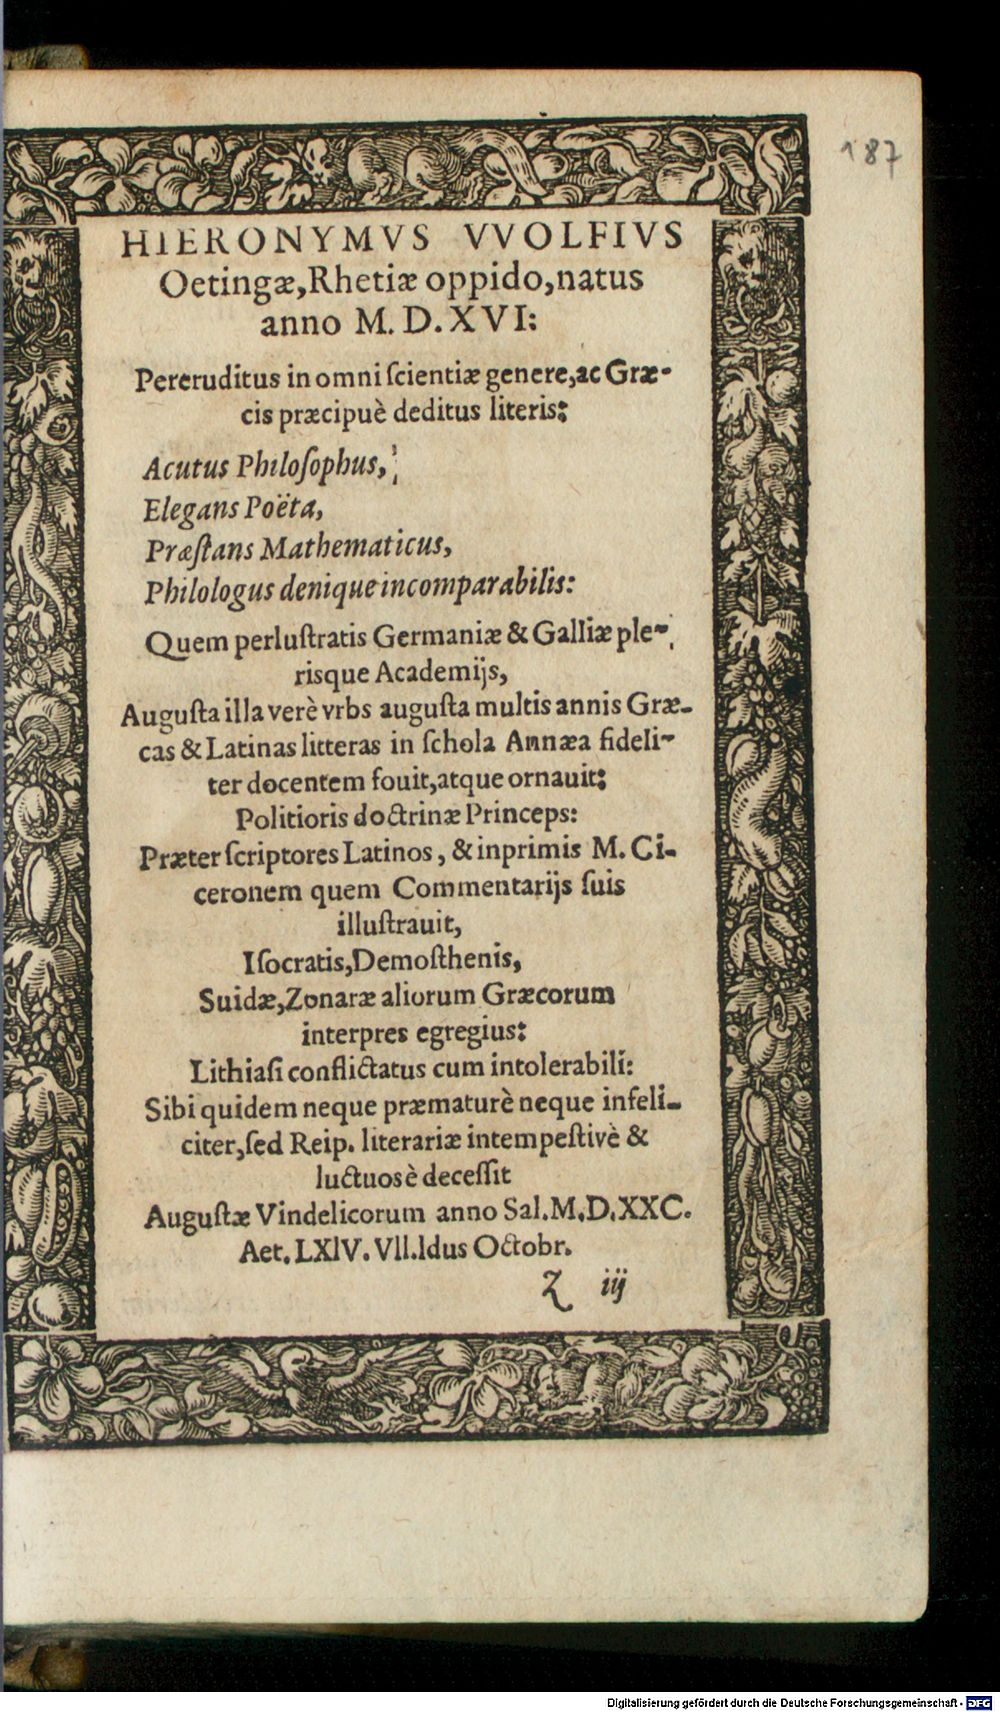 187
HIERONYMVS VVOLFIVS
Oetingæ, Rhetiæ oppido, natus
anno M. D. XVI:
Pereruditus in omni ſcientiæ genere, ac Græ-
cis præcipuè deditus literis:
Acutus Philoſophus,
Elegans Poëta,
Præſtans Mathematicus,
Philologus denique incomparabilis:
Quem perluſtratis Germaniæ & Galliæ ple-
risque Academijs,
Auguſta illa verè vrbs auguſta multis annis Græ-
cas & Latinas litteras in ſchola Annæa fideli-
ter docentem fouit, atque ornauit:
Politioris doctrinæ Princeps:
Præter ſcriptores Latinos, & inprimis M. Ci-
ceronem quem Commentarijs ſuis
illuſtrauit,
Iſocratis, Demoſthenis,
Suidæ, Zonaræ aliorum Græcorum
interpres egregius:
Lithiaſi conflictatus cum intolerabili:
Sibi quidem neque præmaturè neque infeli-
citer, ſed Reip. literariæ intempeſtivè &
luctuosè deceſſit
Auguſtæ Vindelicorum anno Sal. M. D. XXC.
Aet. LXIV. VII. Idus Octobr.
Z iij
Digitalisierung gefördert durch die Deutsche Forschungsgemeinschaft - DFG